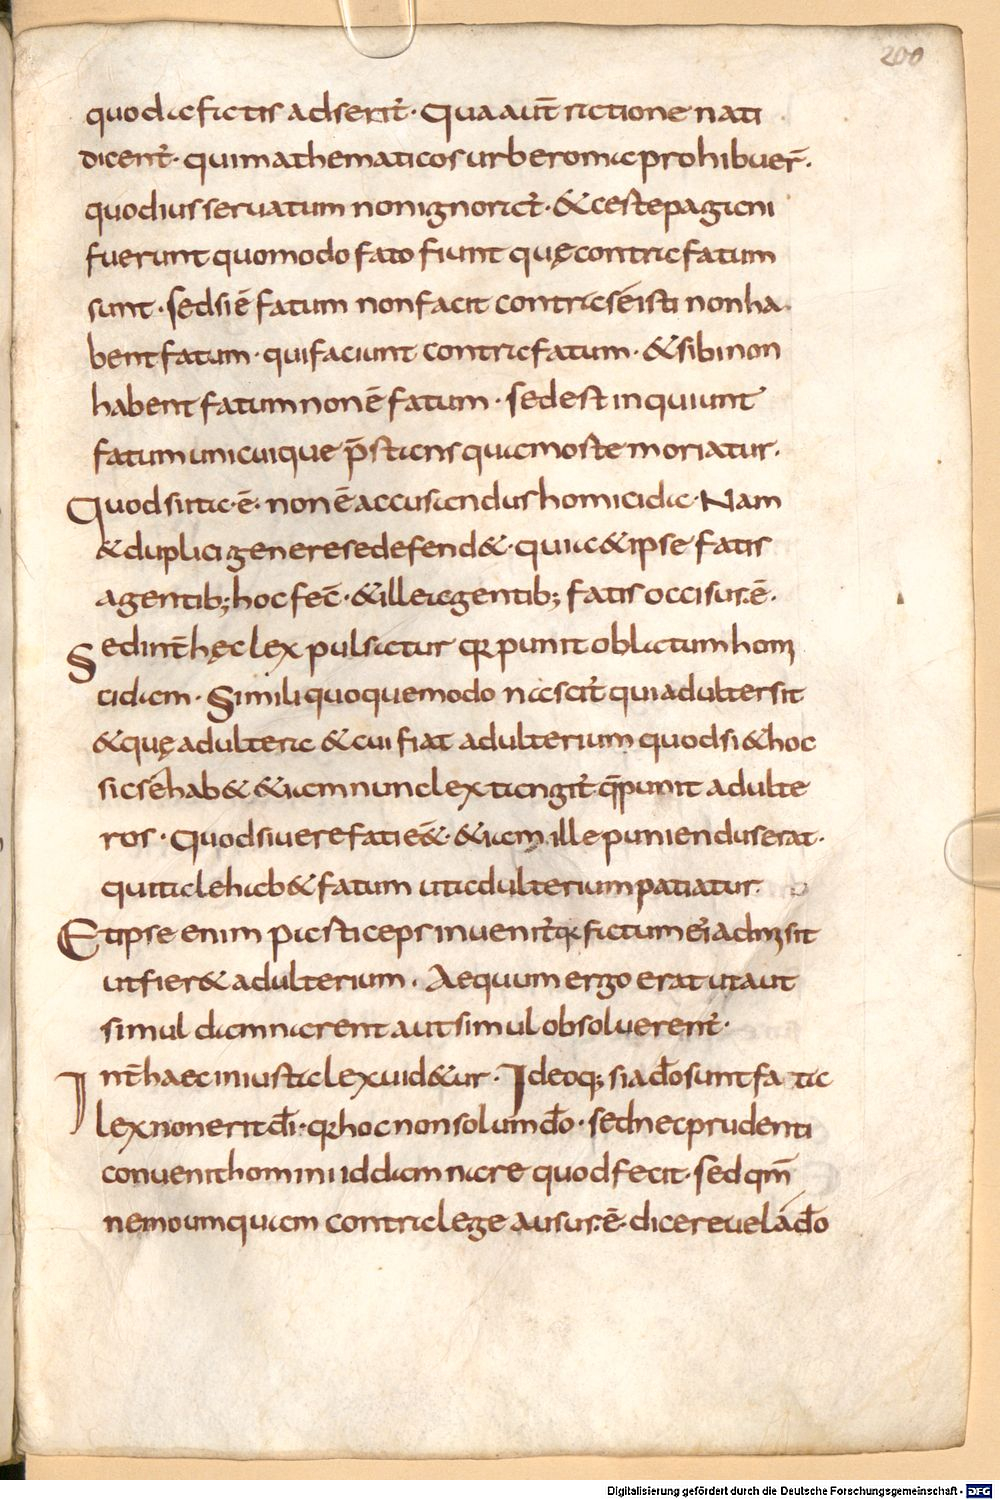 200
quod a fictis adserit̄· Qua aut̄ ratione nati
dicent̄· qui mathematicos urbe roma prohibuer̄·
quod ius seruatum non ignorat̄· & certe pagani
fuerunt quomodo fato fiunt quę contra fatum
sunt· sed si ē fatum non facit contra sé isti non ha
bent fatum· qui faciunt contra fatum· & si bi non
habent fatum non ē fatum· sed est inquiunt
fatum unicuique p̄stans qua morte moriatur·
Quod si ita ē· non ē accusandus homicida· Nam
& duplici genere se defend&· quia & ipse fatis
agentib; hoc fec̄· & ille agentib; fatis occisus ē·
Sed int̄ hęc lex pulsatur q̅ punit oblatum hom
cidam· Simili quoque modo nascit̄ qui adulter sit
& quę adultera & cui fiat adulterium quod si & hoc
sic sé hab& &iam nunc lex tangit̄ q̄ punit adulte
ros· Quod si uere fati e&· &iam ille puniendus erat·
qui tale hab& fatum ut adulterium patiatur·
Et ipse enim pasticeps inuenit̄ q̅ fictum ei adm sit
ut fier& adulterium· Aequum ergo erat ut aut
simul damnarent aut simul obsoluerent̄·
Int̄ haec iniusta lex uid&ur· Ideoq; si a d̄o sunt fa ta
lex non erit d̄i· q̅ hoc non solum d̄o· sed nec prudenti
conuenit homini id damnare quod fecit· sed qm̄
nemo umquam contra lege ausus ē· dicere uel a d̄o
Digitalisierung gefördert durch die Deutsche Forschungsgemeinschaft - DFG